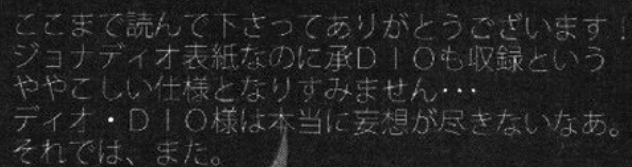 ここまで読んで下さってありがとうございます！
ジョナディオ表紙なのに承ＤＩＯも収録という
ややこしい仕様となりすみません・・・
ディオ・ＤＩＯ様は本当に妄想が尽きないなあ。
それでは、また。